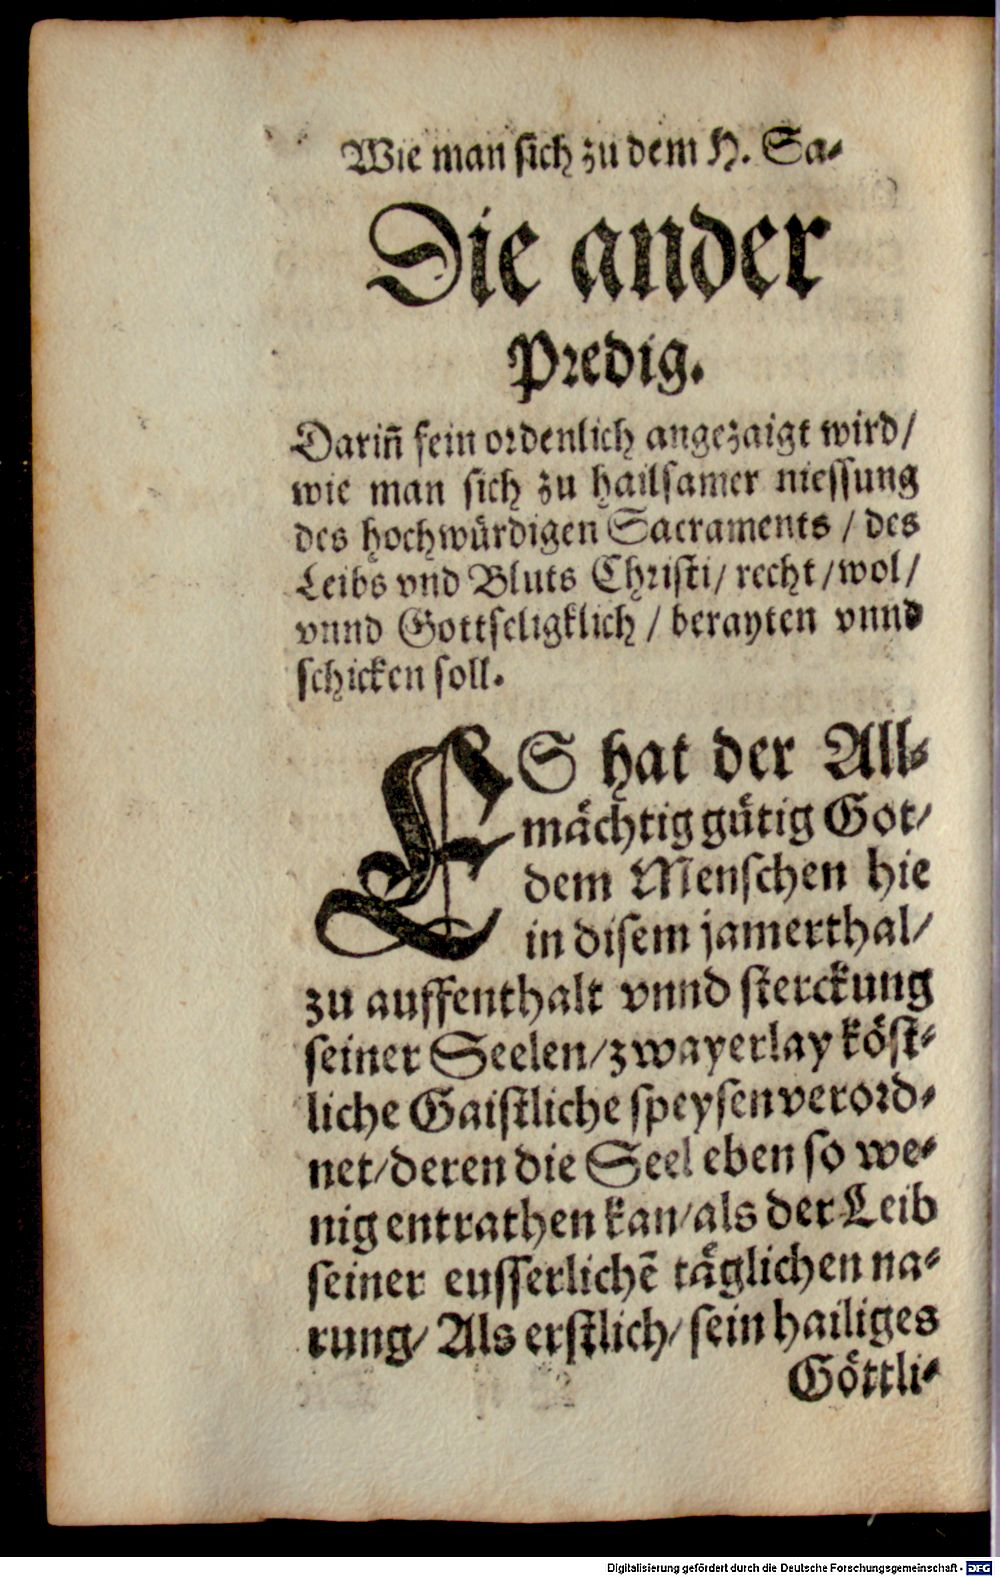 Wie man sich zu dem H. Sa-
Die ander
Predig.
Dariñ fein ordenlich angezaigt wird/
wie man sich zu hailsamer niessung
des hochwürdigen Sacraments / des
Leibs vnd Bluts Christi/ recht/wol/
vnnd Gottseligklich / berayten vnnd
schicken soll.
ES hat der All-
mächtig gütig Got/
dem Menschen hie
in disem jamerthal/
zu auffenthalt vnnd sterckung
seiner Seelen/zwayerlay köst-
liche Gaistliche speysen verord-
net/deren die Seel eben so we-
nig entrathen kan/als der Leib
seiner eusserlichẽ täglichen na-
rung/ Als erstlich/ sein hailiges
Göttli-
Digitalisierung gefördert durch die Deutsche Forschungsgemeinschaft - DFG